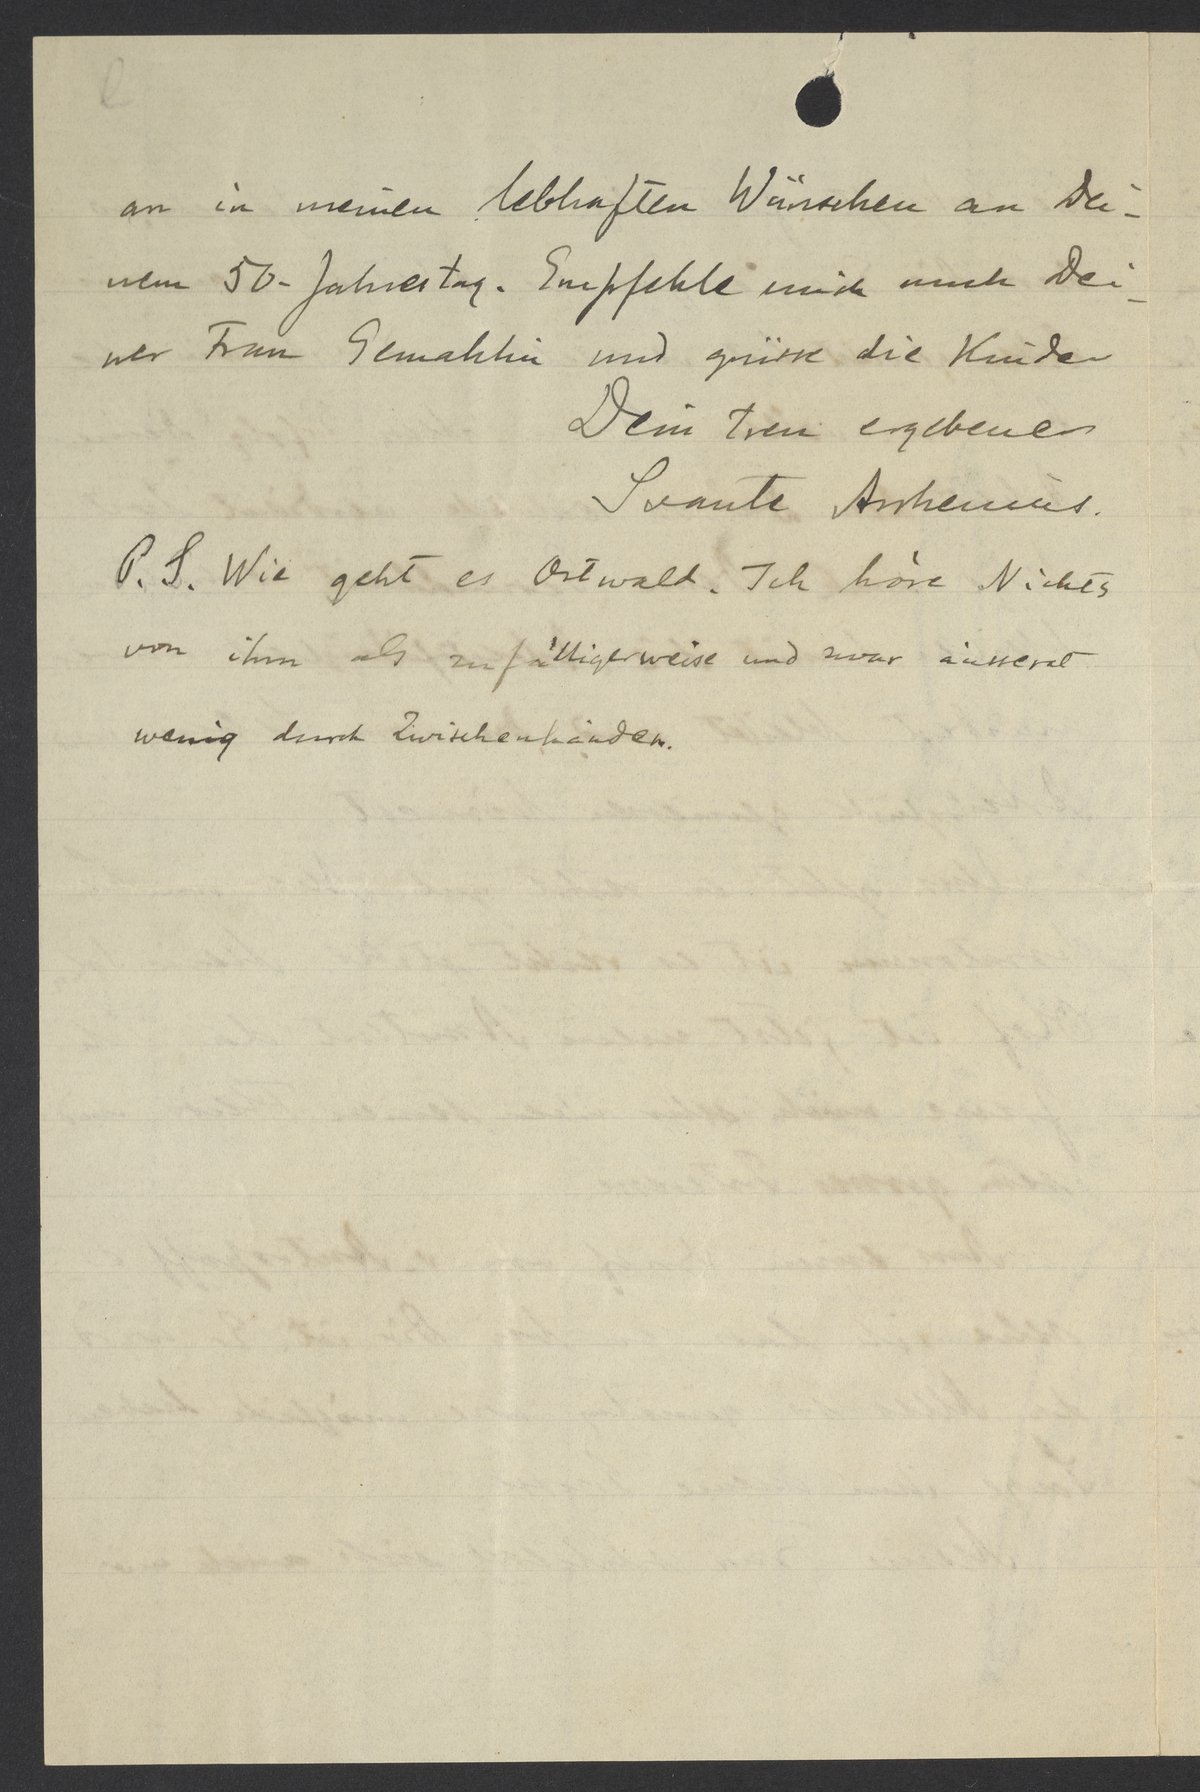 an in meinen lebhaften Wünschen an Dei-
nem 50-Jahrestag. Empfehle mich auch Dei-
ner Frau Gemahlin und grüsse die Kinder
Dein treu ergebener
Svante Arrhenius.
P. S. Wie geht es Ostwald. Ich höre Nichts
von ihm als zufälligerweise und zwar äusserst
wenig durch Zwischenhänden.